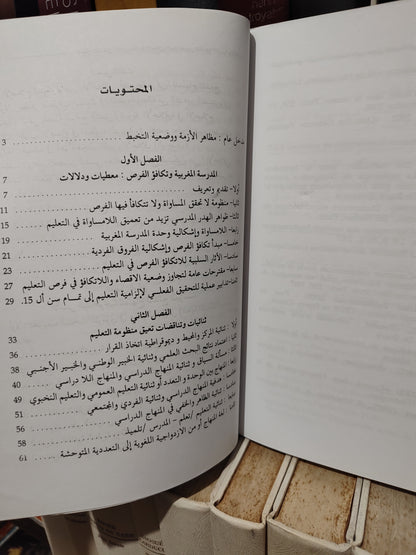 المحتويات
مدخل عام : مظاهر الأزمة ووضعية التخبط 3
الفصل الأول
المدرسة المغربية وتكافؤ الفرص : معطيات ودلالات 7
أولا- تقديم وتعريف 7
ثانيا- منظومة لا تحقق المساواة ولا تتكافأ فيها الفرص 11
ثالثا- ظواهر الهدر المدرسي تزيد من تعميق اللامساواة في التعليم 15
رابعا- اللامساواة وإشكالية وحدة المدرسة المغربية 19
خامسا- مبدأ تكافؤ الفرص وإشكالية الفروق الفردية 21
سادسا- الآثار السلبية للاتكافؤ الفرص في التعليم 23
سابعا- مقترحات عامة لتجاوز وضعية الاقصاء واللاتكافؤ في فرص التعليم 27
ثامنا- تدابير عملية للتحقيق الفعلي لإلزامية التعليم إلى تمام سن ال 15. 29
الفصل الثاني
ثنائيات وتناقضات تعيق منظومة التعليم 33
أولا : ثنائية المركز والمحيط و ديموقراطية اتخاذ القرار 36
ثانيا : اعتماد نتائج البحث العلمي وثنائية الخبير الوطني والخبير الأجنبي 38
ثالثا : مسألة السياق و ثنائية المنهاج الدراسي والمنهاج اللا دراسي 40
رابعا : المنهاج بين الوحدة و التعدد أو ثنائية التعليم العمومي والتعليم النخبوي 49
خامسا : هدفية المنهاج الدراسي وثنائية الفردي والمجتمعي 51
سادسا : ثنائية الظاهر والخفي في المنهاج الدراسي 56
سابعا : ثنائية التعليم /تعلم - المدرس /تلميذ 58
ثامنا : لغة المنهاج أو من الازدواجية اللغوية إلى التعددية المتوحشة 61